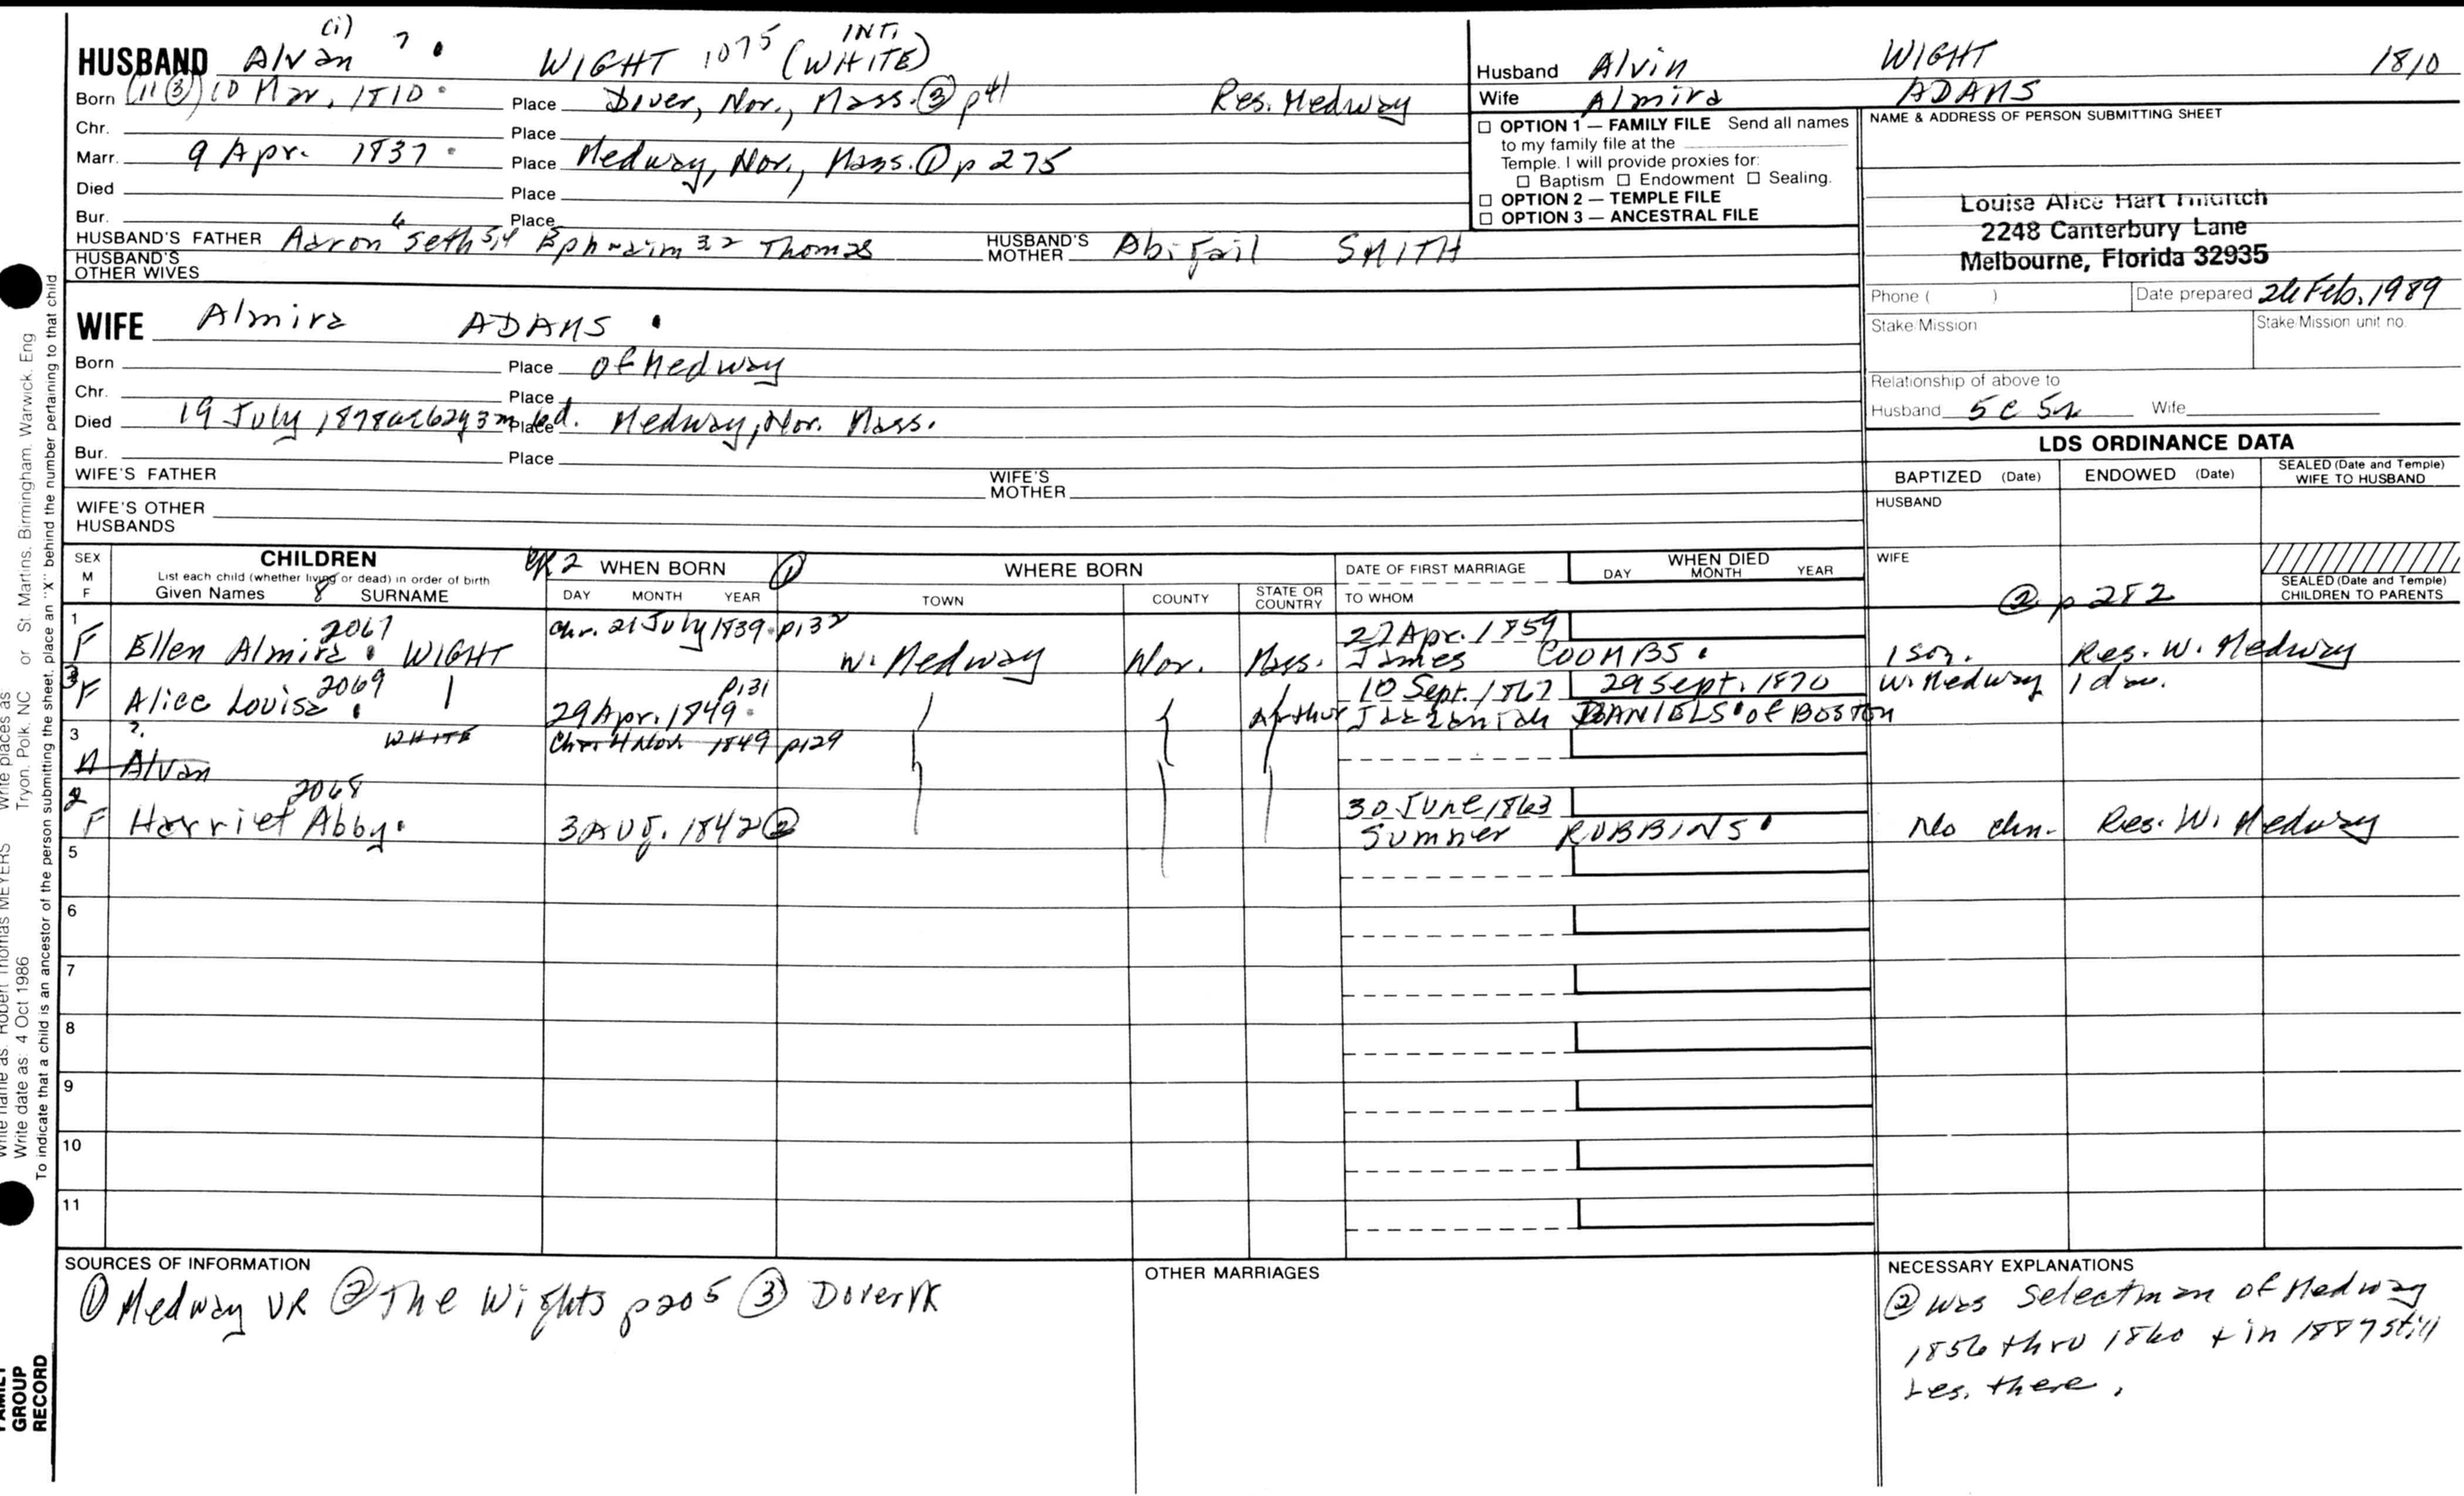 (i)
HUSBAND Alvan ? WIGHT 1075 (WHITE) INT,
Born (11 (3) 10 Mar. 1810 Place Dover, Nor., Mass. (3) p 41 Res. Medway
Chr. Place
Marr. 9 Apr. 1837 Place Medway, Nor., Mass. (1) p 275
Died Place
Bur. Place
HUSBAND'S FATHER Aaron 6 Seth 5,4 Ephraim 3 2 Thomas HUSBAND'S MOTHER Abigail SMITH
HUSBAND'S OTHER WIVES
Husband Alvin WIGHT 1810
Wife Almira ADAMS
☐ OPTION 1 — FAMILY FILE Send all names
to my family file at the
Temple. I will provide proxies for:
☐ Baptism ☐ Endowment ☐ Sealing.
☐ OPTION 2 — TEMPLE FILE
☐ OPTION 3 — ANCESTRAL FILE
NAME & ADDRESS OF PERSON SUBMITTING SHEET
Louisa Alice Hart
2248 Canterbury Lane
Melbourne, Florida 32935
Phone ( ) Date prepared 26 Feb. 1989
Stake/Mission Stake/Mission unit no.
Relationship of above to
Husband 5c 5r Wife
WIFE Almira ADAMS
Born Place of Medway
Chr. Place
Died 19 July 1878 ae 62y 3m 6d. Place Medway, Nor. Mass.
Bur. Place
WIFE'S FATHER WIFE'S MOTHER
WIFE'S OTHER HUSBANDS
LDS ORDINANCE DATA
BAPTIZED (Date) ENDOWED (Date) SEALED (Date and Temple) WIFE TO HUSBAND
HUSBAND
WIFE
SEALED (Date and Temple) CHILDREN TO PARENTS
(2) p 282
SEX M F CHILDREN VR 2 WHEN BORN (1) WHERE BORN DATE OF FIRST MARRIAGE WHEN DIED
List each child (whether living or dead) in order of birth
Given Names 8 SURNAME DAY MONTH YEAR TOWN COUNTY STATE OR COUNTRY TO WHOM DAY MONTH YEAR
1 2067 Chr. 21 July 1839 p132 27 Apr. 1859
F Ellen Almira WIGHT W. Medway Nor. Mass. James COOMBS 1 son. Res. W. Medway
3 F Alice Louisa 2069 29 Apr. 1849 p131 10 Sept. 1867 29 Sept. 1870 W. Medway 1 dau.
Arthur Jaazaniah DANIELS of BOSTON
3 ? WHITE Chr. 4 Nov 1849 p129
M Alvan
2 2068 30 June 1863
F Harriet Abby 3 Aug. 1842 (2) Sumner ROBBINS No chn. Res. W. Medway
5
6
7
8
9
10
11
SOURCES OF INFORMATION
(1) Medway VR (2) The Wights p205 (3) Dover VR
OTHER MARRIAGES
NECESSARY EXPLANATIONS
(2) Was Selectman of Medway
1856 thru 1860 + in 1887 still
res. there.
To indicate that a child is an ancestor of the person submitting the sheet, place an "X" behind the number pertaining to that child
Tryon, Polk, NC or St. Martins, Birmingham, Warwick, Eng
Write places as
Write name as: Robert Thomas MEYERS
Write date as: 4 Oct 1986
FAMILY GROUP RECORD